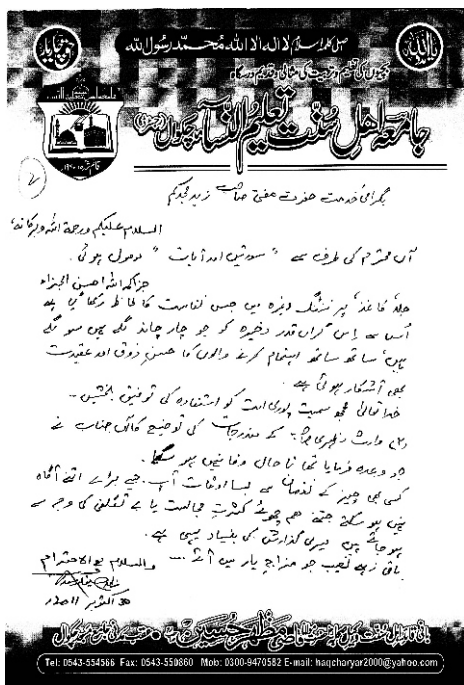 اصل کلمہ اسلام لا الہ الا اللہ محمد رسول اللہ
یا اللہ
حق چار یار
بچیوں کی تعلیم و تربیت کی مثالی و قدیم درسگاہ
جامعہ اهل سنت تعلیم النساء چکوال
بگرامی خدمت حضرت مفتی صاحب زید مجدکم
السلام علیکم ورحمۃ اللہ وبرکاتہ
آں محترم کی طرف سے "سورتیں اور آیات" موصول ہوئی.
جزاکم اللہ احسن الجزاء
جلد، کاغذ، پرنٹنگ وغیرہ میں جس نفاست کا لحاظ رکھا گیا ہے
اس سے اِس گراں قدر ذخیرہ کو جو چار چاند لگے ہیں سو لگے
ہیں، ساتھ ساتھ اہتمام کرنے والوں کا حسنِ ذوق اور عقیدت
بھی آشکار ہوئی ہے.
خدا تعالیٰ مجھ سمیت پوری امت کو استفادہ کی توفیق بخشیں.
کی توضیح کا آں جناب نے
جو وعدہ فرمایا تھا تا حال وفا نہیں ہو سکا.
کسی بھی چیز کے نقصان سے بسا اوقات آپ جیسے بڑے اتنے آگاہ
نہیں ہو سکتے جتنے ہم چھوٹے کثرتِ مجالست یا بے تکلفی کی وجہ سے
ہو جاتے ہیں میری گذارش کی بنیاد یہی ہے.
باقی زہے نصیب جو مزاجِ یار میں آئے ....
والسلام مع الاحترام
اکتوبر
مظہر حسین
Tel: 0543-554566 Fax: 0543-550860 Mob: 0300-9470582 E-mail: haqcharyar2000@yahoo.com